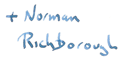 + Norman
Richborough